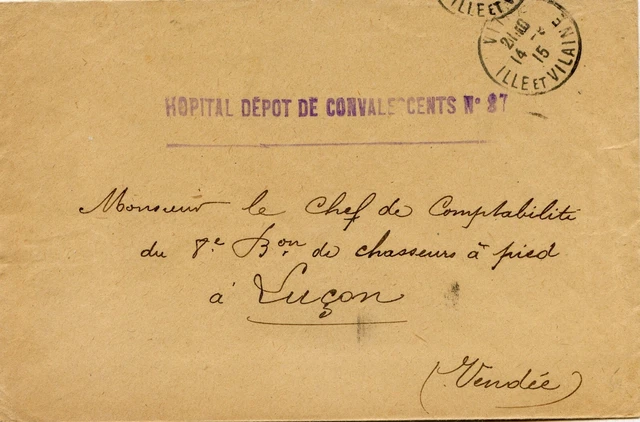 ILLE ET VI
VIT
INE
21
14 15
ILLE ET VILAINE
HOPITAL DÉPOT DE CONVALESCENTS N° 87
Monsieur le Chef de Comptabilité
du 8.e B.on de chasseurs à pied
à Luçon
(Vendée)